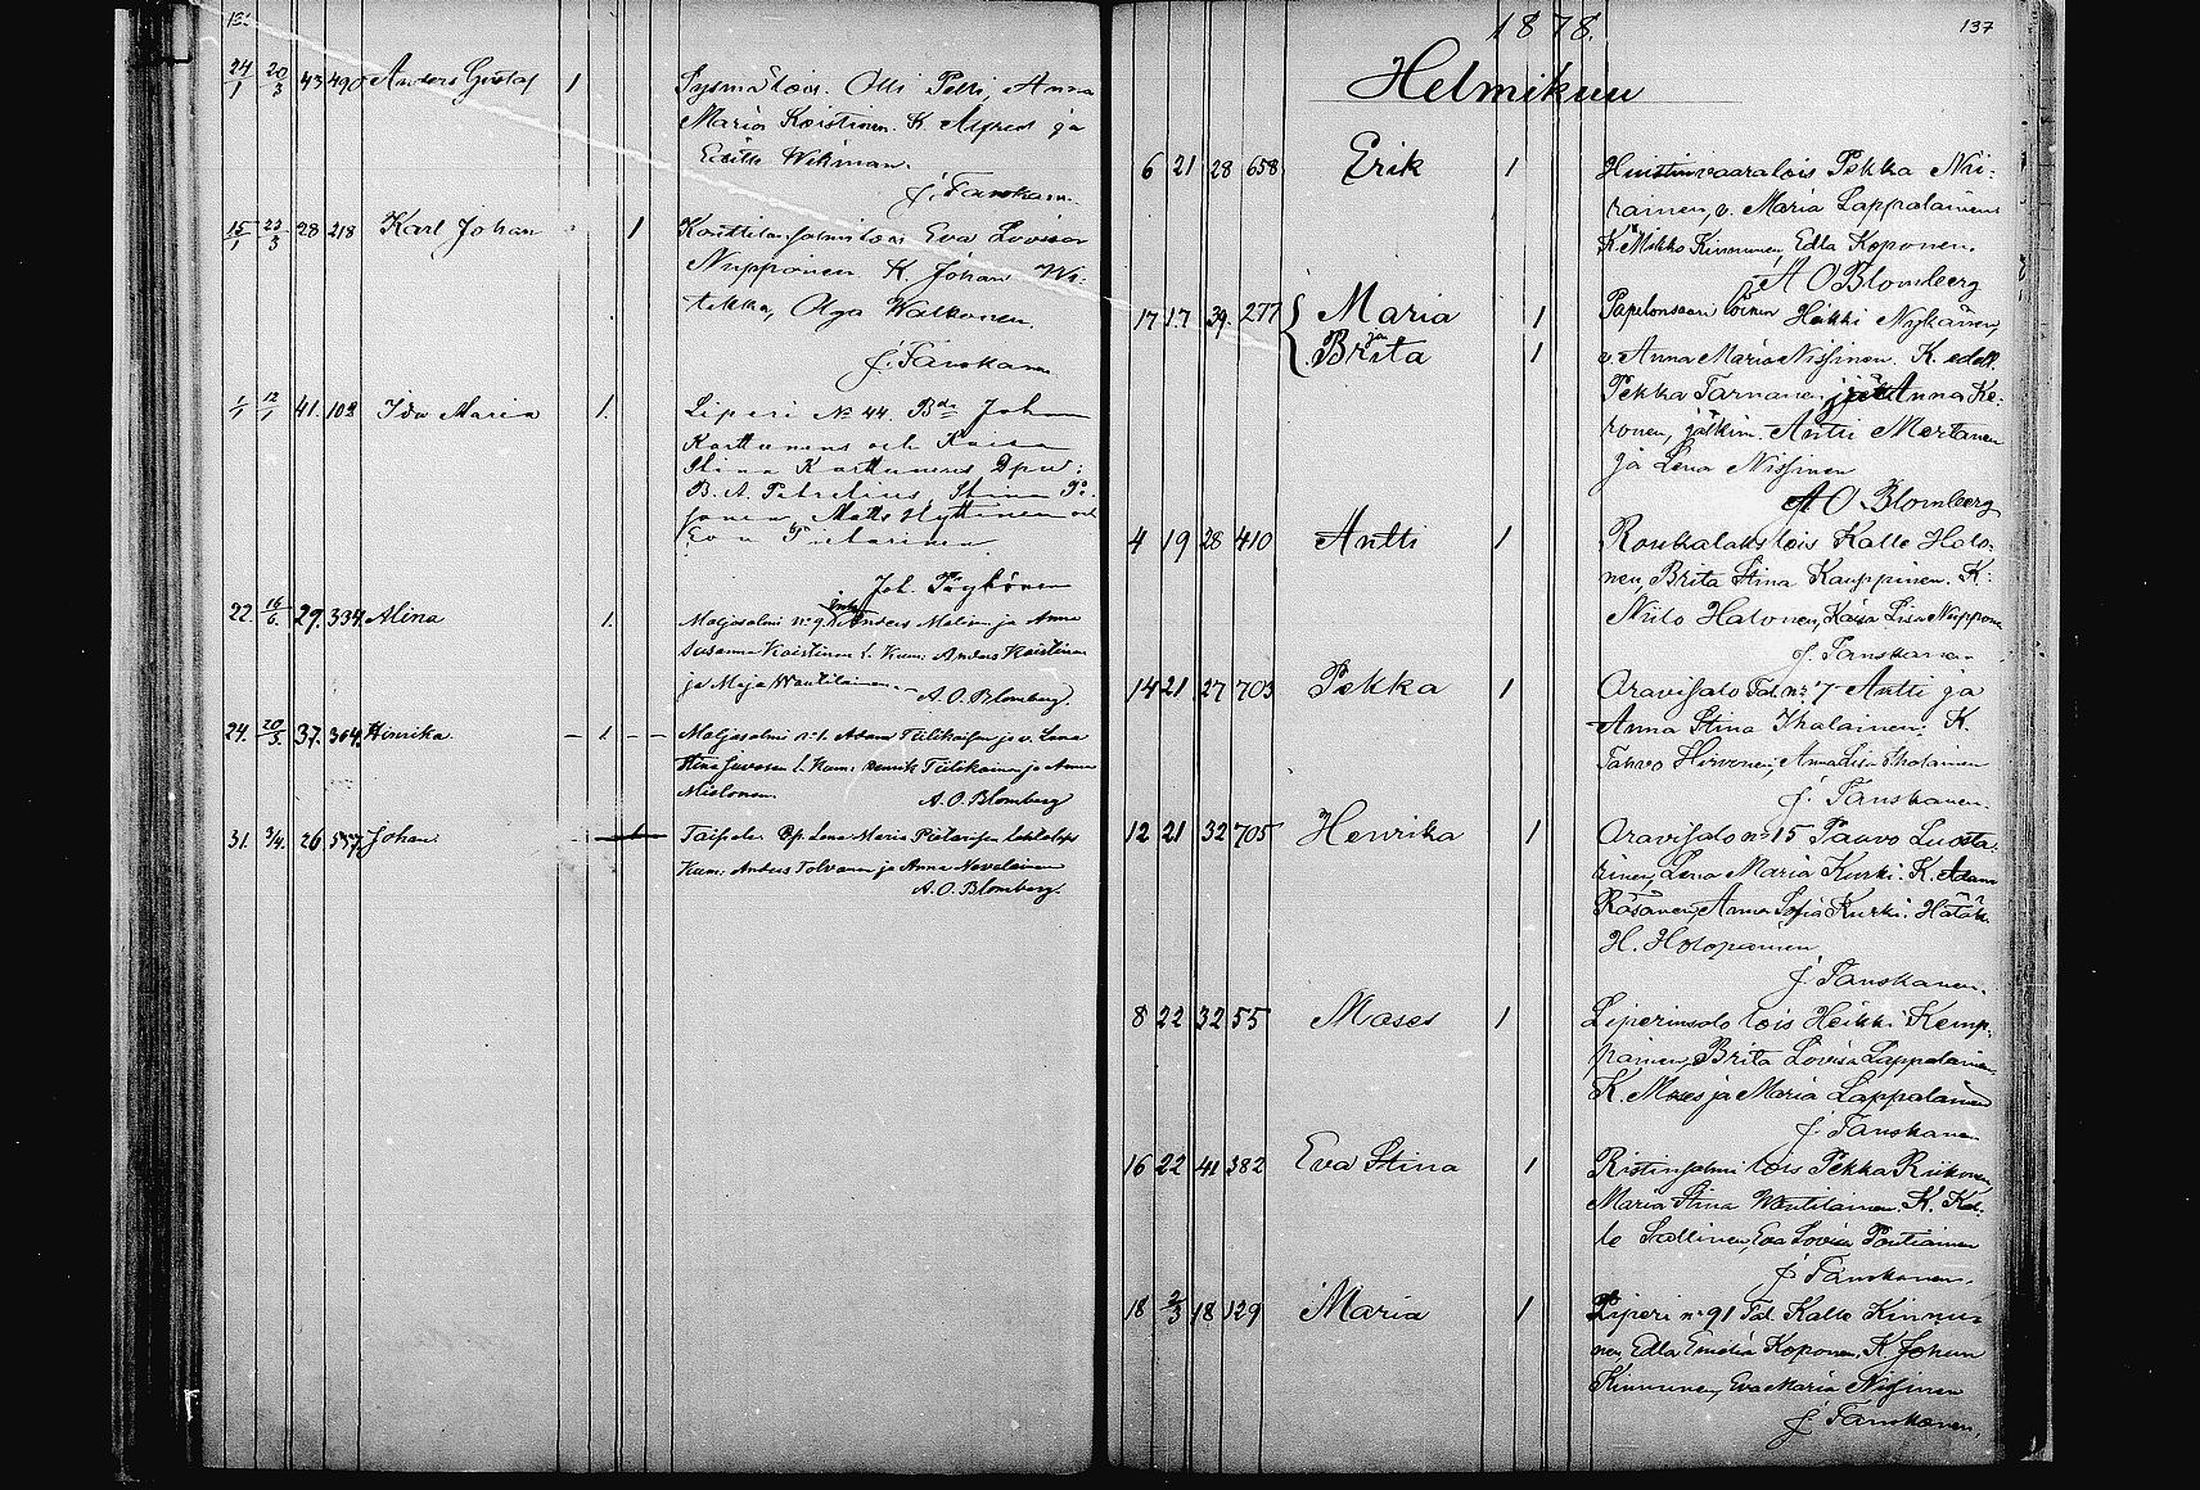 24/1 20/3 43 490 Anders Gustaf 1 Sysmä lois. Olli Pelli, Anna
Maria Koistinen. K. Alfred ja
Edith Wikman.
J. Tanskanen.
15/1 23/3 28 218 Karl Johan 1 lois Eva Lovisa
Nupponen. K. Johan Wi-
tikka, Olga Walkonen.
J. Tanskanen
1/1 12/1 41. 102 Ida Maria 1. Liperi No 44. Bd. Johan
Karttunens och Kaisa
Stina Karttunens Dpv:
B. A. Petrelius, Stina
Matts Hyttinen och
Eva Pietarinen
Joh. Pöyhönen
22. 16/6. 29. 334. Alina 1. Maljasalmi no 9. Anders Malinen ja Anna
Susanna Koistinen l. Kum: Anders Koistinen
ja Maja Wäntilainen.
A. O. Blomberg.
24. 20/5. 37. 304. Hinrika 1. Maljasalmi no 1. Adam Tiilikaisen ja v. Lena
Stina l. Kum: Henrik Tiilikainen ja Anna
Mielonen.
A. O. Blomberg
31. 3/4. 26 557. Johan 1 Taipale. Lena Maria Pietarisen
Kum: Anders Tolvanen ja Anna Nevalainen
A. O. Blomberg.
1878. 137
Helmikuu
6 21 28 658 Erik 1 Huistinvaara lois Pekka Nii-
rainen, v. Maria Lappalainen
K. Mikko Kinnunen, Edla Koponen.
A O Blomberg
17 17 39. 277 Maria 1 Papelonsaari loinen Heikki Nykänen,
ja
Brita 1 v. Anna Maria Nissinen. K. edell.
Pekka Tarnanen ja Anna Ke-
ronen, jälkim. Antti Mertanen
ja Lena Nissinen
A O Blomberg
4 19 28 410 Antti 1 Roukalahti lois Kalle Halo-
nen, Brita Stina Kauppinen. K:
Niilo Halonen, Kaisa Lisa Nuppone
J. Tanskanen
14 21 27 703 Pekka 1 Oravisalo Tal. no 7 Antti ja
Anna Stina Ihalainen. K.
Tahvo Hirvonen, Anna Lisa Ihalainen
J. Tanskanen.
12 21 32 705 Henrika 1 Oravisalo no 15 Paavo Luosta-
rinen, Lena Maria Kurki. K. Adam
Räsänen, Anna Sofia Kurki. Hätäk.
H. Holopainen
J. Tanskanen.
8 22 32 55 Moses 1 Liperinsalo lois Heikki Kemp-
painen, Brita Lovisa Lappalainen.
K. Moses ja Maria Lappalainen
J. Tanskanen
16 22 41 382 Eva Stina 1 Ristinsalmi lois Pekka Riikonen,
Maria Stina Wäntilainen. K. Kal-
le Sallinen, Eva Lovisa Pontiainen
J. Tanskanen.
18 2/3 18 129 Maria 1 Liperi no 91 Tal. Kalle Kinnu-
nen, Edla Emelia Koponen. K. Johan
Kinnunen, Eva Maria Nissinen
J. Tanskanen.